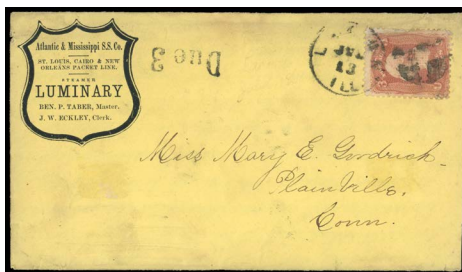 Atlantic & Mississippi S.S. Co.
ST. LOUIS, CAIRO & NEW
ORLEANS PACKET LINE.
STEAMER
LUMINARY
BEN. P. TABER, Master.
J. W. ECKLEY, Clerk.
Due 3
13
ILL
3
3
Miss Mary E. Goodrich
Plainville,
Conn.